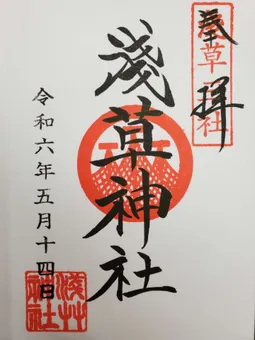 奉拝
草
社
淺草神社
令和六年五月十四日
淺艸
神社